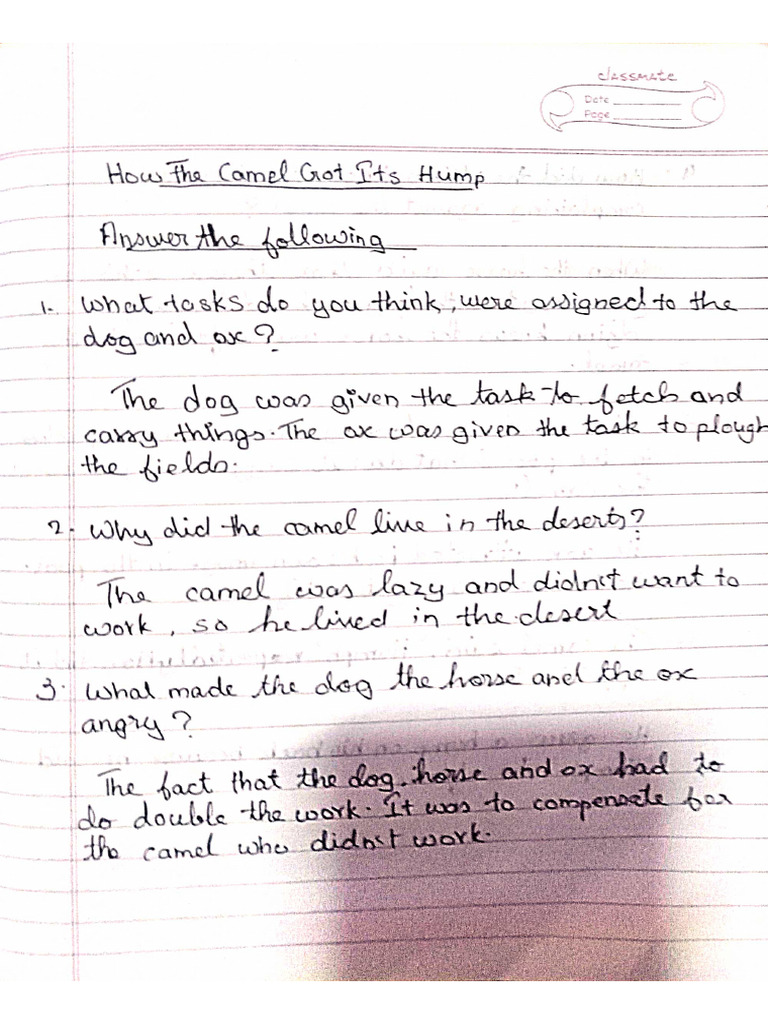 classmate
Date
Page
How The Camel Got Its Hump
Answer the following
1. What tasks do you think, were assigned to the
dog and ox?
The dog was given the task to fetch and
carry things. The ox was given the task to plough
the fields.
2. Why did the camel live in the deserts?
The camel was lazy and didn't want to
work, so he lived in the desert
3. What made the dog the horse and the ox
angry?
The fact that the dog, horse and ox had to
do double the work. It was to compensate for
the camel who didn't work.